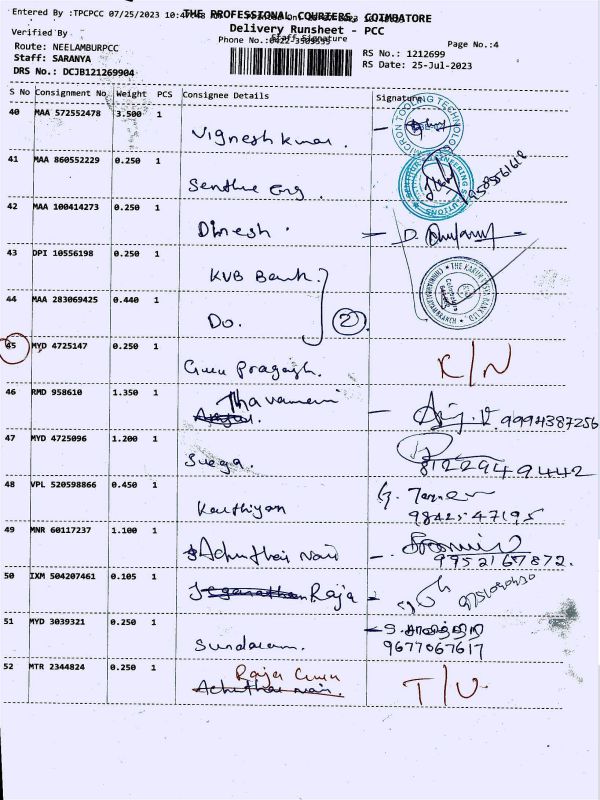 Entered By :TPCPCC 07/25/2023 10:47:48
THE PROFESSIONAL COURIERS, COIMBATORE
Verified By
Delivery Runsheet - PCC
Staff Signature
Phone No.:0422-3509535
Page No.:4
Route: NEELAMBURPCC
RS No.: 1212699
Staff: SARANYA
RS Date: 25-Jul-2023
DRS No.: DCJB121269904
S No Consignment No Weight PCS Consignee Details Signature
40 MAA 572552478 3.500 1 Vignesh Kumar.
41 MAA 860552229 0.250 1 Senthur Eng.
42 MAA 100414273 0.250 1 Dinesh.
43 DPI 10556198 0.250 1 KVB Bank.
44 MAA 283069425 0.440 1 Do. 2
45 MYD 4725147 0.250 1 Guru Pragash. K/N
46 RMD 958610 1.350 1 Thavamani 9994387256
47 MYD 4725096 1.200 1 8122949442
48 VPL 520598866 0.450 1 Karthiyan 9842547195
49 MNR 60117237 1.100 1 Achuthai Nair 9952167872.
50 IXM 504207461 0.105 1 Raja
51 MYD 3039321 0.250 1 Sundaram. 9677067617
52 MTR 2344824 0.250 1 Raja Guru T/U.